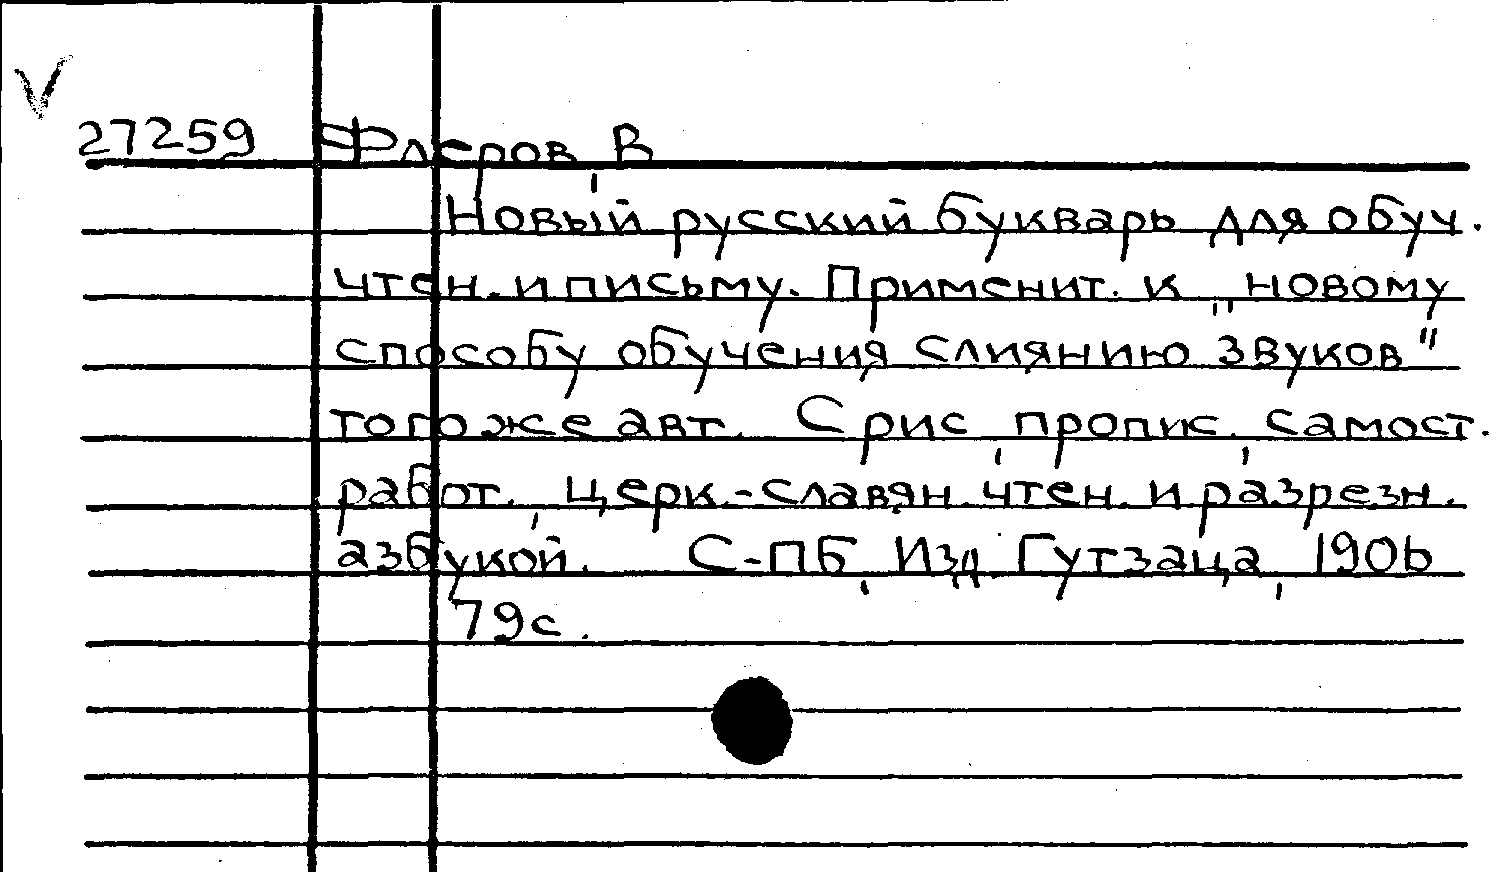 27259 Флеров, В
Новый русский букварь для обуч.
чтен. и письму. Применит. к „новому
способу обучения слиянию звуков"
тогоже авт. С рис, пропис, самост.
работ, церк.-славян. чтен. и разрезн.
азбукой. С-ПБ, Изд. Гутзаца, 1906
79с.